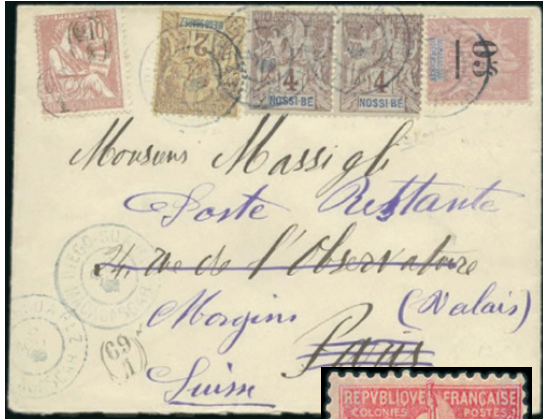 4
NOSSI-BÉ
4
NOSSI-BÉ
Monsieur Massigli
Poste Restante
24. rue de l'Observatoire
Morgins (Valais)
Paris
Suisse
DIEGO-SUAREZ
MADAGASCAR
REPVBLIQVE FRANÇAISE
COLONIES POSTES